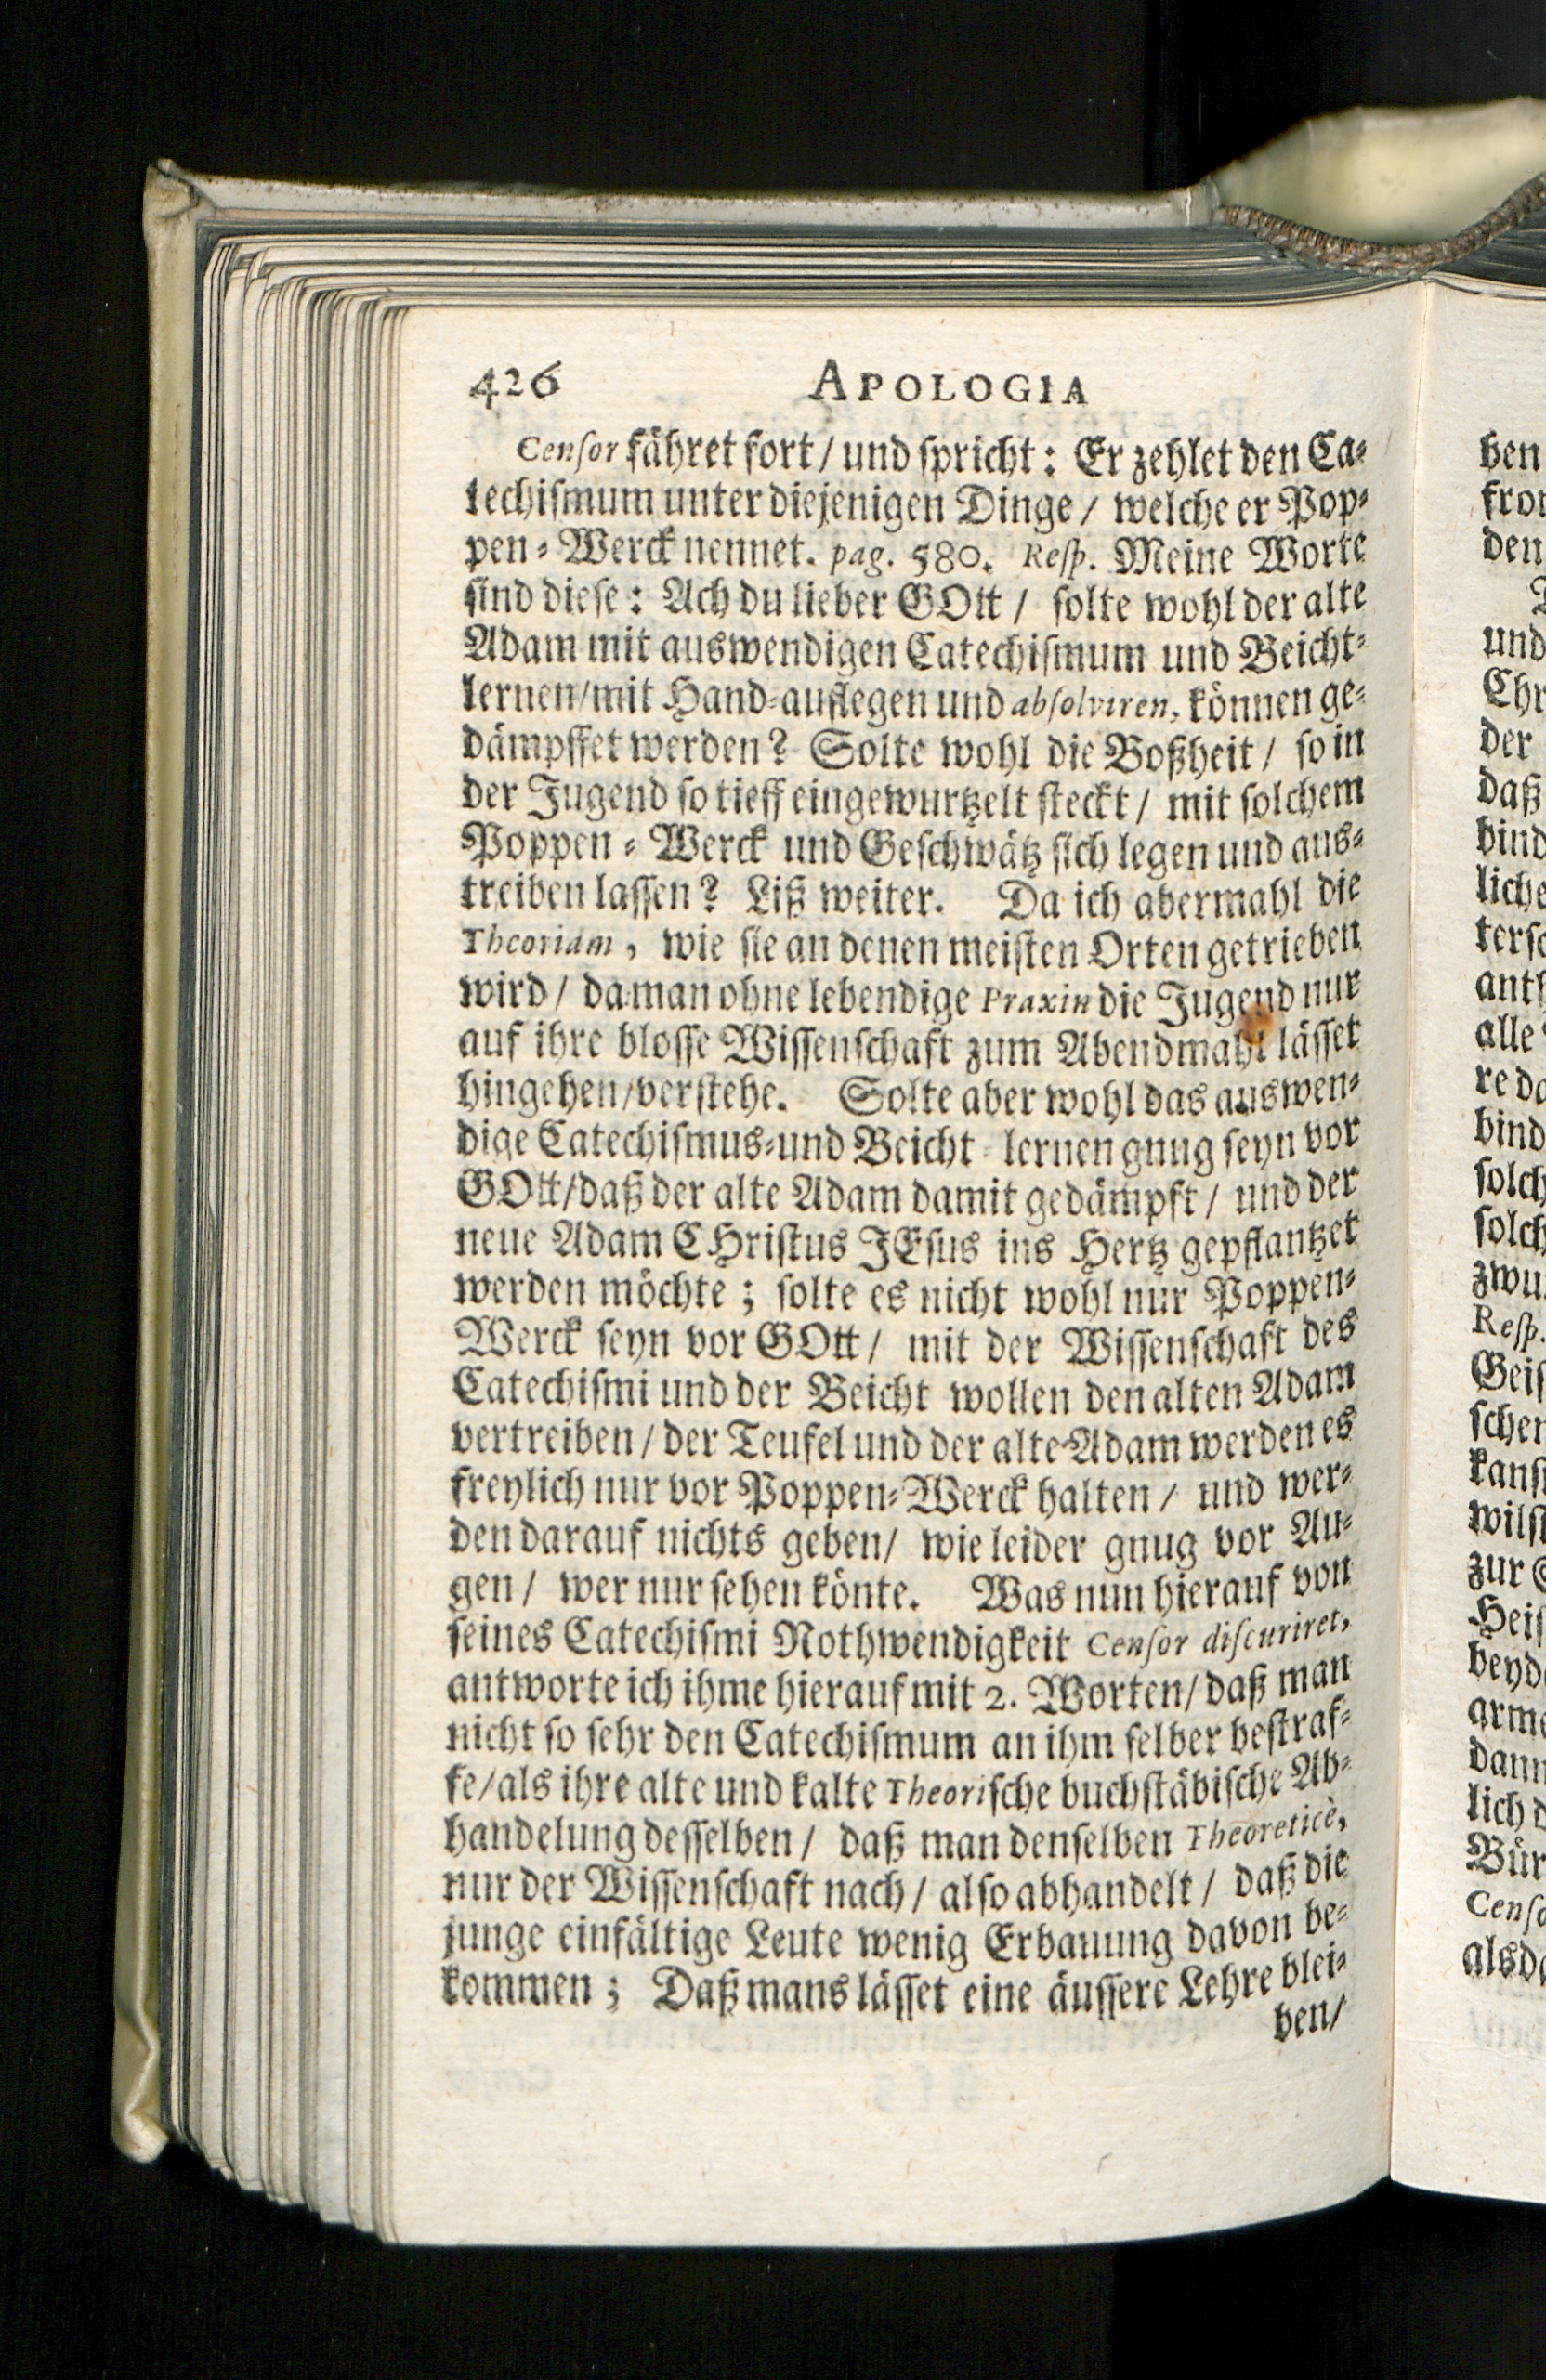 426 APOLOGIA
Censor fähret fort / und spricht: Er zehlet den Ca-
techismum unter diejenigen Dinge / welche er Pop-
pen-Werck nennet. pag. 580. Resp. Meine Worte
sind diese: Ach du lieber GOtt / solte wohl der alte
Adam mit auswendigen Catechismum und Beicht-
lernen/mit Hand-auflegen und absolviren, können ge-
dämpffet werden? Solte wohl die Boßheit / so in
der Jugend so tieff eingewurtzelt steckt / mit solchem
Poppen-Werck und Geschwätz sich legen und aus-
treiben lassen? Liß weiter. Da ich abermahl die
Theoriam, wie sie an denen meisten Orten getrieben
wird / da man ohne lebendige Praxin die Jugend nur
auf ihre blosse Wissenschaft zum Abendmahl lässet
hingehen/verstehe. Solte aber wohl das auswen-
dige Catechismus-und Beicht-lernen gnug seyn vor
GOtt/daß der alte Adam damit gedämpft / und der
neue Adam CHristus JEsus ins Hertz gepflantzet
werden möchte; solte es nicht wohl nur Poppen-
Werck seyn vor GOtt / mit der Wissenschaft des
Catechismi und der Beicht wollen den alten Adam
vertreiben / der Teufel und der alte Adam werden es
freylich nur vor Poppen-Werck halten / und wer-
den darauf nichts geben/ wie leider gnug vor Au-
gen / wer nur sehen könte. Was nun hierauf von
seines Catechismi Nothwendigkeit Censor discuriret,
antworte ich ihme hierauf mit 2. Worten/ daß man
nicht so sehr den Catechismum an ihm selber bestraf-
fe/als ihre alte und kalte Theorische buchstäbische Ab-
handelung desselben / daß man denselben Theoreticè,
nur der Wissenschaft nach / also abhandelt / daß die
junge einfältige Leute wenig Erbauung davon be-
kommen; Daß mans lässet eine äussere Lehre blei-
ben/
ben
den
und
Chr
der
daß
bind
liche
alle
bind
solch
solch
Resp.